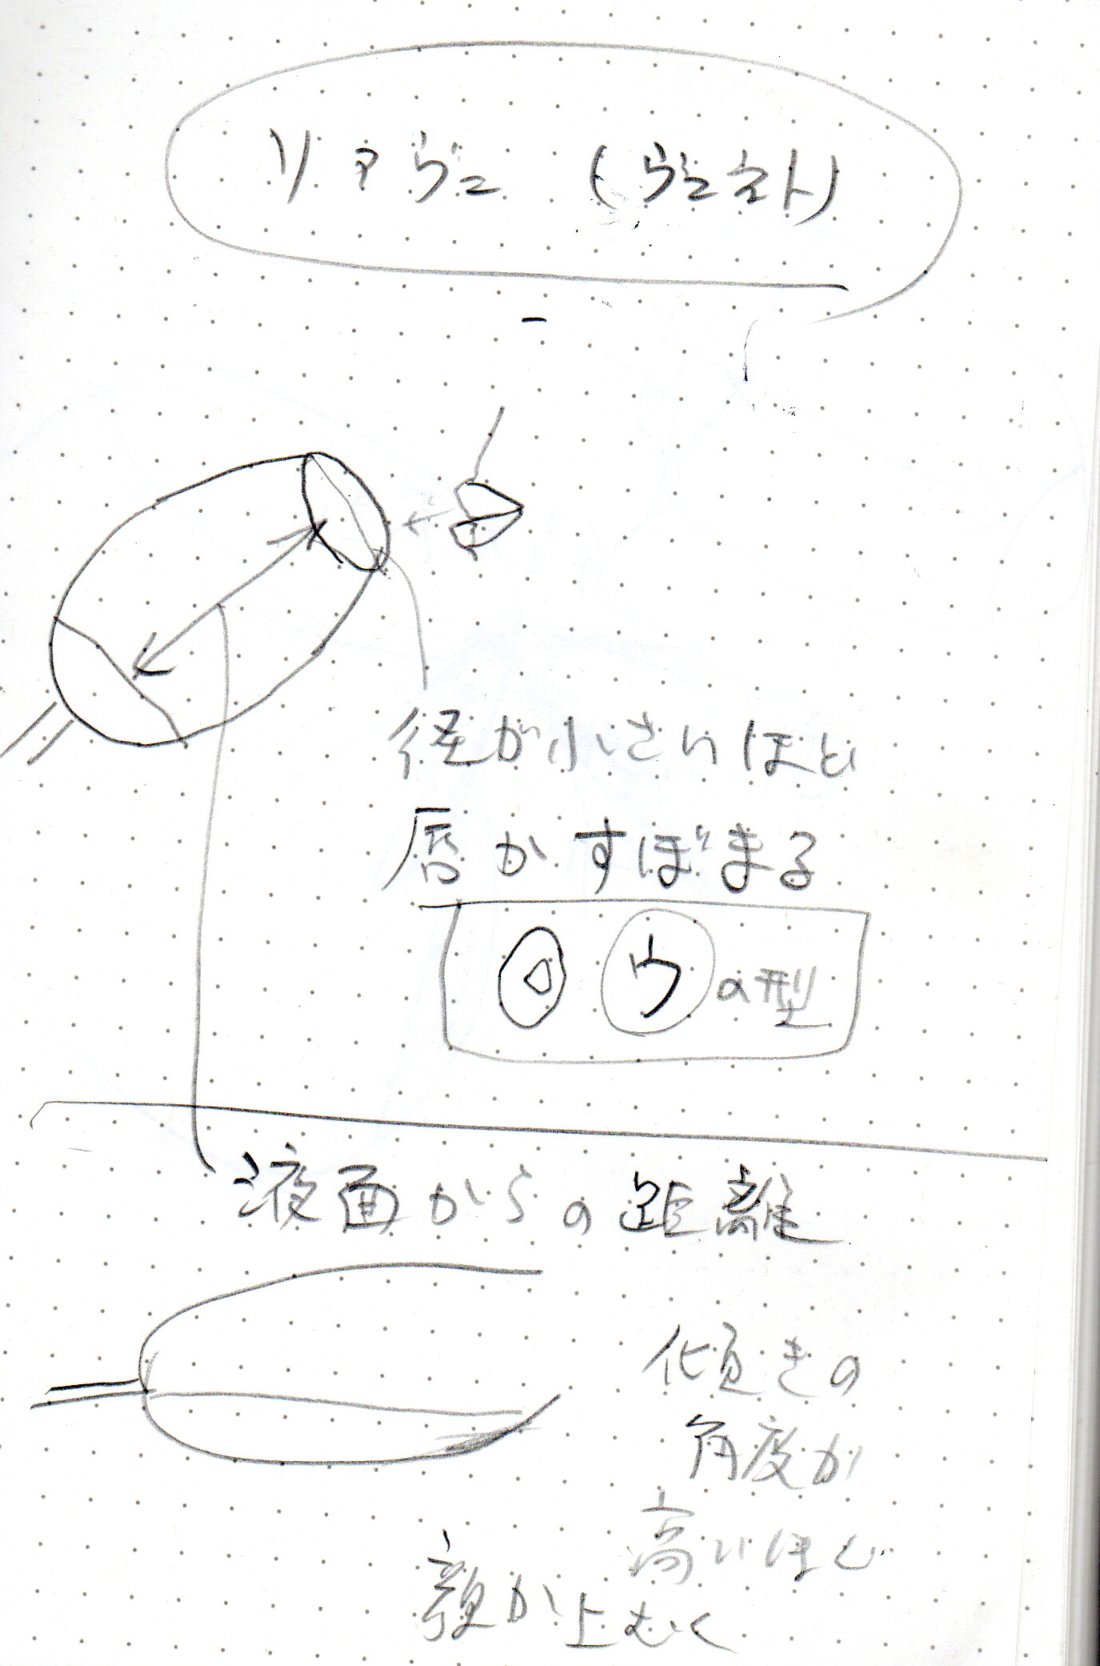 ソアヴェ (ヴェネト)
径が小さいほど
唇がすぼまる
ウの型
液面からの距離
傾きの
角度が
高いほど
顔が上むく